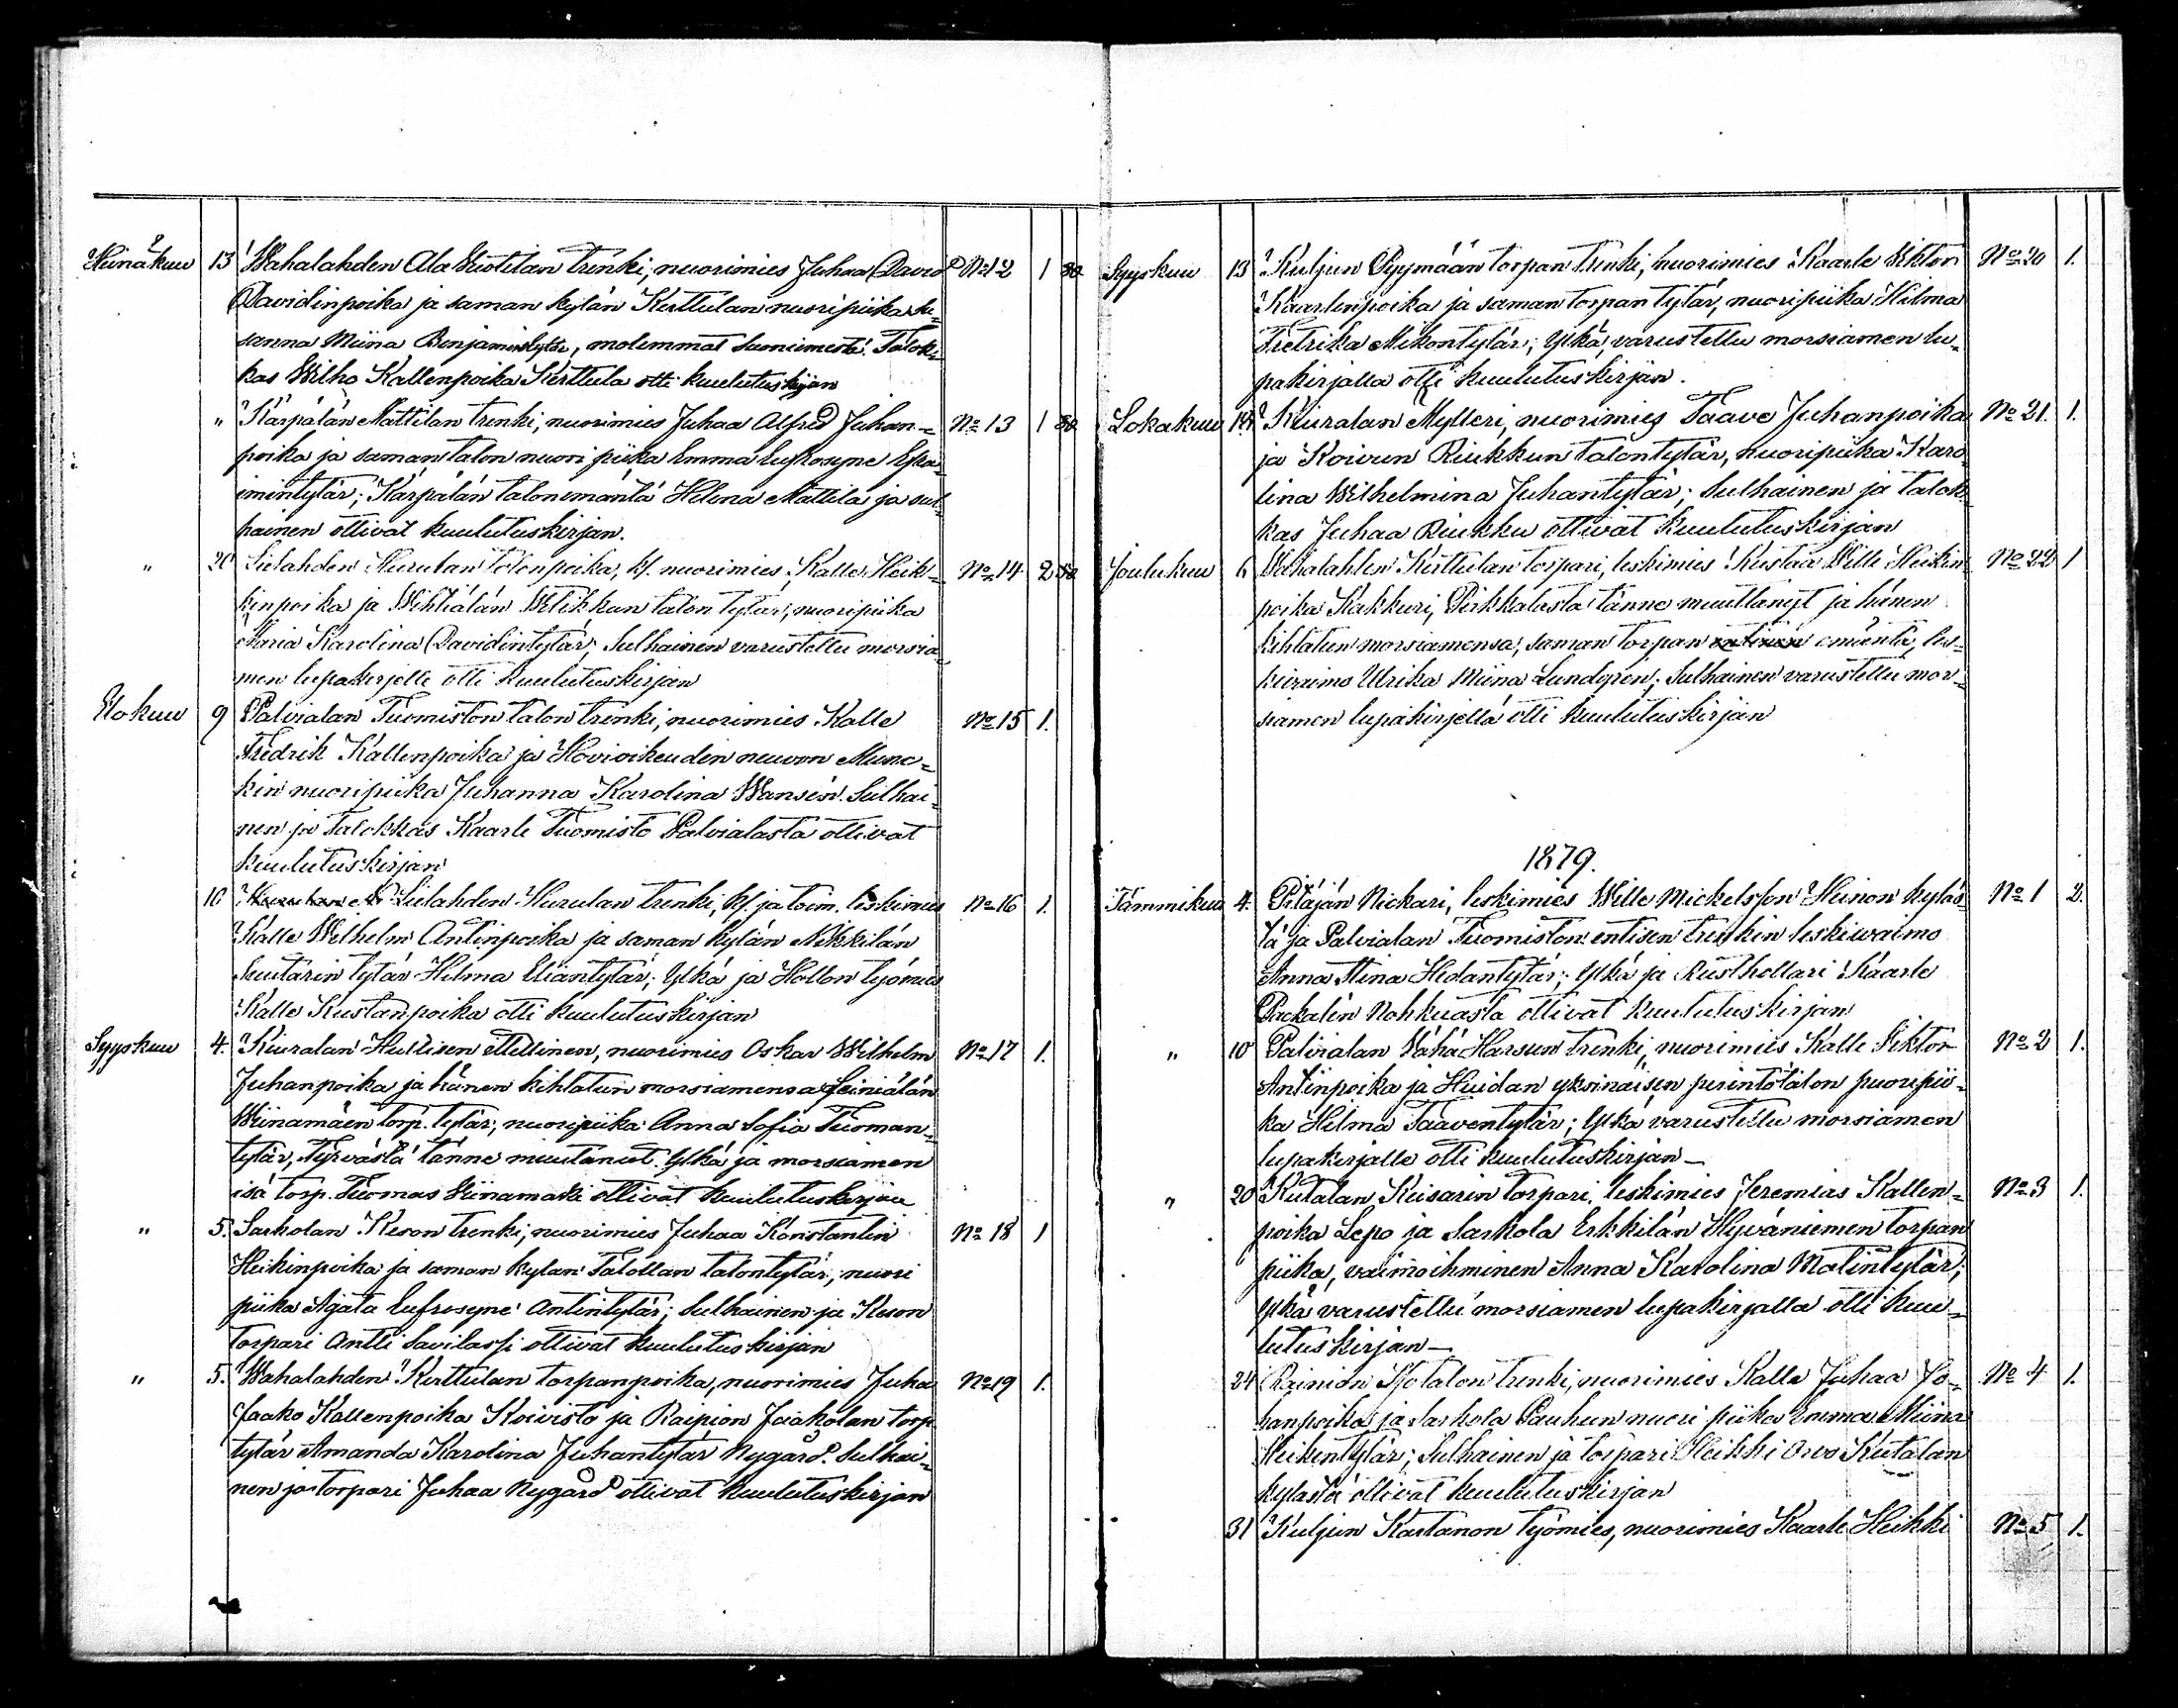 Heinäkuu 13 Wahalahden Ala trenki, nuorimies Juhaa David No 12 1 80
Davidinpoika ja saman kylän Kerttulan nuoripiika Su-
sanna Miina Benjamintytär, molemmat Talok-
kas Wilho Kallenpoika Kerttula otti kuulutuskirjan
" Kärpälän Mattilan trenki, nuorimies Juhaa Alfred Juhan- No 13 1 80
poika ja saman talon nuori piika Emma Eufrosyne Efra-
imintytär; Kärpälän talonemäntä Helena Mattila ja sul-
hainen ottivat kuulutuskirjan.
" 20 Sielahden Hurulan talonpoika, nuorimies Kalle Heik- No 14 2 80
kinpoika ja talon tytär, nuoripiika
Maria Karolina Davidintytär; Sulhainen varustettu morsia-
men lupakirjalla otti kuulutuskirjan
Elokuu 9 Palvialan Tuomiston talon trenki, nuorimies Kalle No 15 1.
Fredrik Kallenpoika ja Hovioikeuden neuvon Munc-
kin nuoripiika Juhanna Karolina Wansén. Sulhai-
nen ja Talokkas Kaarle Tuomisto Palvialasta ottivat
kuulutuskirjan
10 Sielahden Hurulan trenki, ja toim. leskimies No 16 1.
Kalle Wilhelm Antinpoika ja saman kylän Nikkilän
Suutarin tytär Hilma Eliäntytär; Ylkä ja Hollon työmies
Kalle Kustanpoika otti kuulutuskirjan
Syyskuu 4. Kiuralan Hullisen Itellinen, nuorimies Oskar Wilhelm No 17 1.
Juhanpoika ja hänen kihlatun morsiamensa Leiniälän
Wiinamäen torp. tytär, nuoripiika Anna Sofia Tuoman-
tytär, Tyrväästä tänne muutanut. Ylkä ja morsiamen
isä torp. Tuomas Wiinamäki ottivat kuulutuskirjan
" 5. Sarkolan Keson trenki, nuorimies Juhaa Konstantin No 18 1
Heikinpoika ja saman kylan Talollan talontytär, nuori
piika Agata Eufrosyne Antintytär; Sulhainen ja Keson
torpari Antti Savilassi ottivat kuulutus kirjan
" 5. Wahalahden Kerttulan torpanpoika, nuorimies Juha No 19 1.
Jaako Kallenpoika Koivisto ja Raipion Jaakolan torp.
tytär Amanda Karolina Juhantytär Nygård. Sulhai-
nen ja torpari Juhaa Nygård ottivat kuulutuskirjan
Syyskuu 13 Kuljun Pyymään torpan trenki, nuorimies Kaarle Viktor No 20 1.
Kaarlenpoika ja saman torpan tytär, nuoripiika Hilma
Fretrika Mikontytär; Ylkä, varustettu morsiamen lu-
pakirjalla otti kuulutuskirjan.
Lokakuu 19 Kiuralan Mylleri, nuorimies Taave Juhanpoika No 21. 1.
ja Koivun Riukkun talontytär, nuoripiika Karo-
lina Wilhelmina Juhantytär; Sulhainen ja Talok-
kas Juhaa Riukku ottivat kuulutuskirjan
Joulukuu 6 Wahalahden Kerttulan torpari, leskimies Kustaa Wille Heikin No 22 1
poika Kakkuri, Pirkkalasta tänne muuttanut ja hänen
kihlatun morsiamensa, saman torpan emäntä, les-
kivaimo Ulrika Miina Lundgren; Sulhainen varustettu mor-
siamen lupakirjalla otti kuulutuskirjan
1879.
Tammikuu 4. Pitäjän Nickari, leskimies Wille Mickelsson Heinon kyläs- No 1 2.
tä ja Palvialan Tuomiston entisen trenkin leskiwaimo
Anna Stina Hedantytär; Ylkä ja Rusthollari Kaarle
Packalén Nohkuasta ottivat kuulutuskirjan
" 10 Palvialan Wähä Harsun trenki, nuorimies Kalle Viktor No 2 1.
Antinpoika ja Huidan yksinäisen perintötalon nuoripii-
ka Hilma Taaventytär; Ylkä varustettu morsiamen
lupakirjalla otti kuulutuskirjan-
" 20 Kutalan Keisarin torpari, leskimies Jeremias Kallen- No 3 1.
poika Lepo ja Sarkola Erkkilän Hyväniemen torpan
piika, vaimoihminen Anna Karolina Matintytär;
Ylkä varustettu morsiamen lupakirjalla otti kuu-
lutuskirjan-
24 Rainion Isotalon trenki, nuorimies Kalle Juhaa Jo- No 4 1.
hanpoika ja Sarkola Pauhun nuori piika Emma Miina
Heikentytär; Sulhainen ja torpari Heikki Orvo Kutalan
kylästä ottivat kuulutuskirjan
31 Kuljun Kartanon työmies, nuorimies Kaarle Heikki No 5 1.